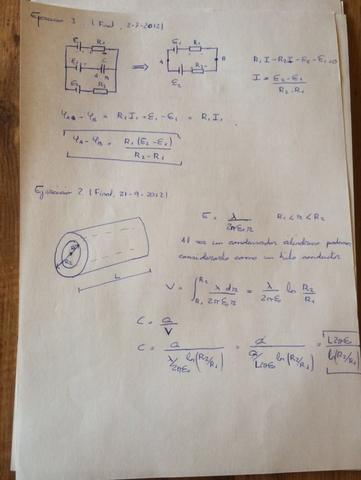 Ejercicio 1 (Final, 2-2-2012)
E₁ R₁
E₁ C
A B
E₂ R₂
⟹
E₁ R₁
A B
E₂ R₂
R₁I - R₂I + E₂ - E₁ = 0
I = (E₂ - E₁) / (R₂ - R₁)
φA - φB = R₁I + E₁ - E₁ = R₁I
φA - φB = R₁(E₂ - E₁) / (R₂ - R₁)
Ejercicio 2 (Final, 21-9-2012)
L
E = λ / 2πε₀r R₁ < r < R₂
Al ser un condensador cilíndrico podemos
considerarlo como un hilo conductor
V = ∫_{R₁}^{R₂} λ dr / 2πε₀r = λ / 2πε₀ ln R₂/R₁
C = Q / V
C = Q / (λ/2πε₀ ln(R₂/R₁)) = Q / (Q/L2πε₀ ln(R₂/R₁)) = L2πε₀ / ln(R₂/R₁)